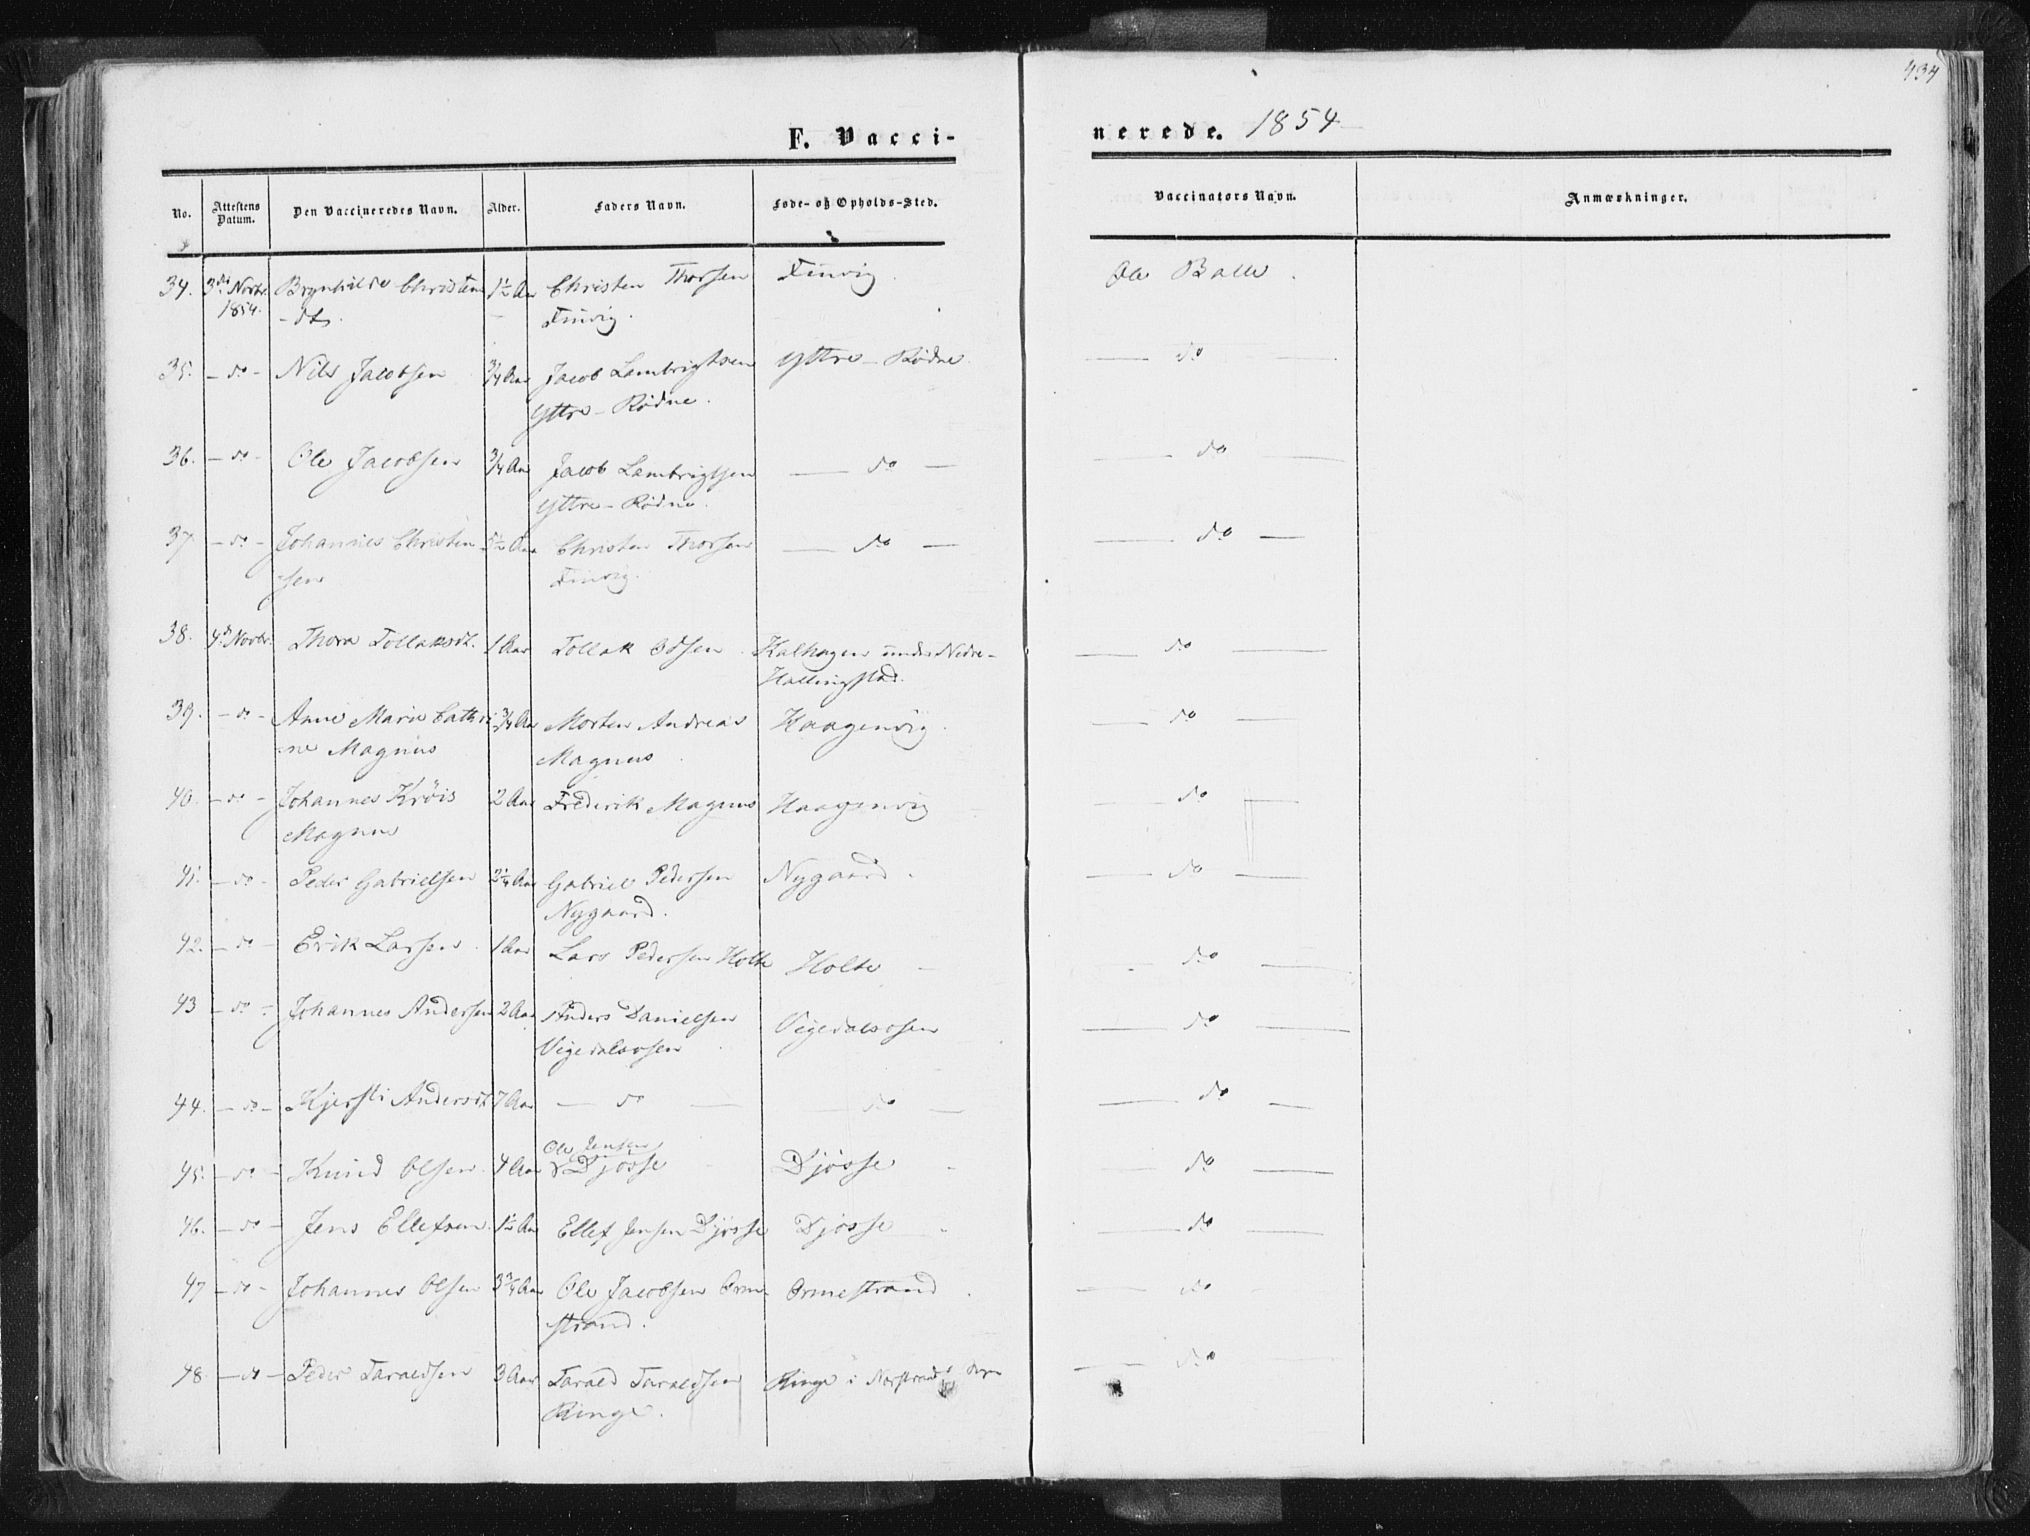 434
F. Vacci-
nerede. 1854
No. Attestens Datum. Den Vaccineredes Navn. Alder. Faders Navn. Føde- og Opholds-Sted. Vaccinators Navn. Anmærkninger.
34. 3die Novbr. Brynhilde Christen 1½ Aar Christen Thorsen Finvig. Ole Balle.
1854. -dtr. Finvig.
35. - do - Nils Jacobsen ¾ Aar Jacob Lambrigtsen Yttre-Rødne do
Yttre-Rødne.
36. - do - Ole Jacobsen ¾ Aar Jacob Lambrigtsen do do
Yttre-Rødne.
37. - do - Johannes Christen Aar Christen Thorsen do do
sen Finvig.
38. 4d Novbr. Thora Tollaksdt. 1 Aar Tollak Odsen Kalhagen under Nedre- do
Hallingstad.
39. - do - Anne Marie Cathri ¾ Aar Morten Andreas Haagenvig. do
ne Magnus Magnus
40. - do - Johannes Krøis 2 Aar Frederik Magnus Haagenvig do
Magnus
41. - do - Peder Gabrielsen 2¼ Aar Gabriel Pedersen Nygaard. do
Nygaard.
42. - do - Erik Larsen 1 Aar Lars Pedersen Holte Holte do
43 - do - Johannes Andersen 2 Aar Anders Danielsen Vigedalsosen do
Vigedalsosen
44. - do - Kjersti Andersdt. 7 Aar do do do
Ole Jensen
45. - do - Knud Olsen 4 Aar Djøsse Djøsse do
46. - do - Jens Ellefsen 1½ Aar Ellef Jensen Djøsse Djøsse do
47 - do - Johannes Olsen 3¾ Aar Ole Jacobsen Orme- Ormestrand. do
strand.
48. - do - Peder Taraldsen 3 Aar Tarald Taraldsen Ringe i Nærstrands Sogn do
Ringe.